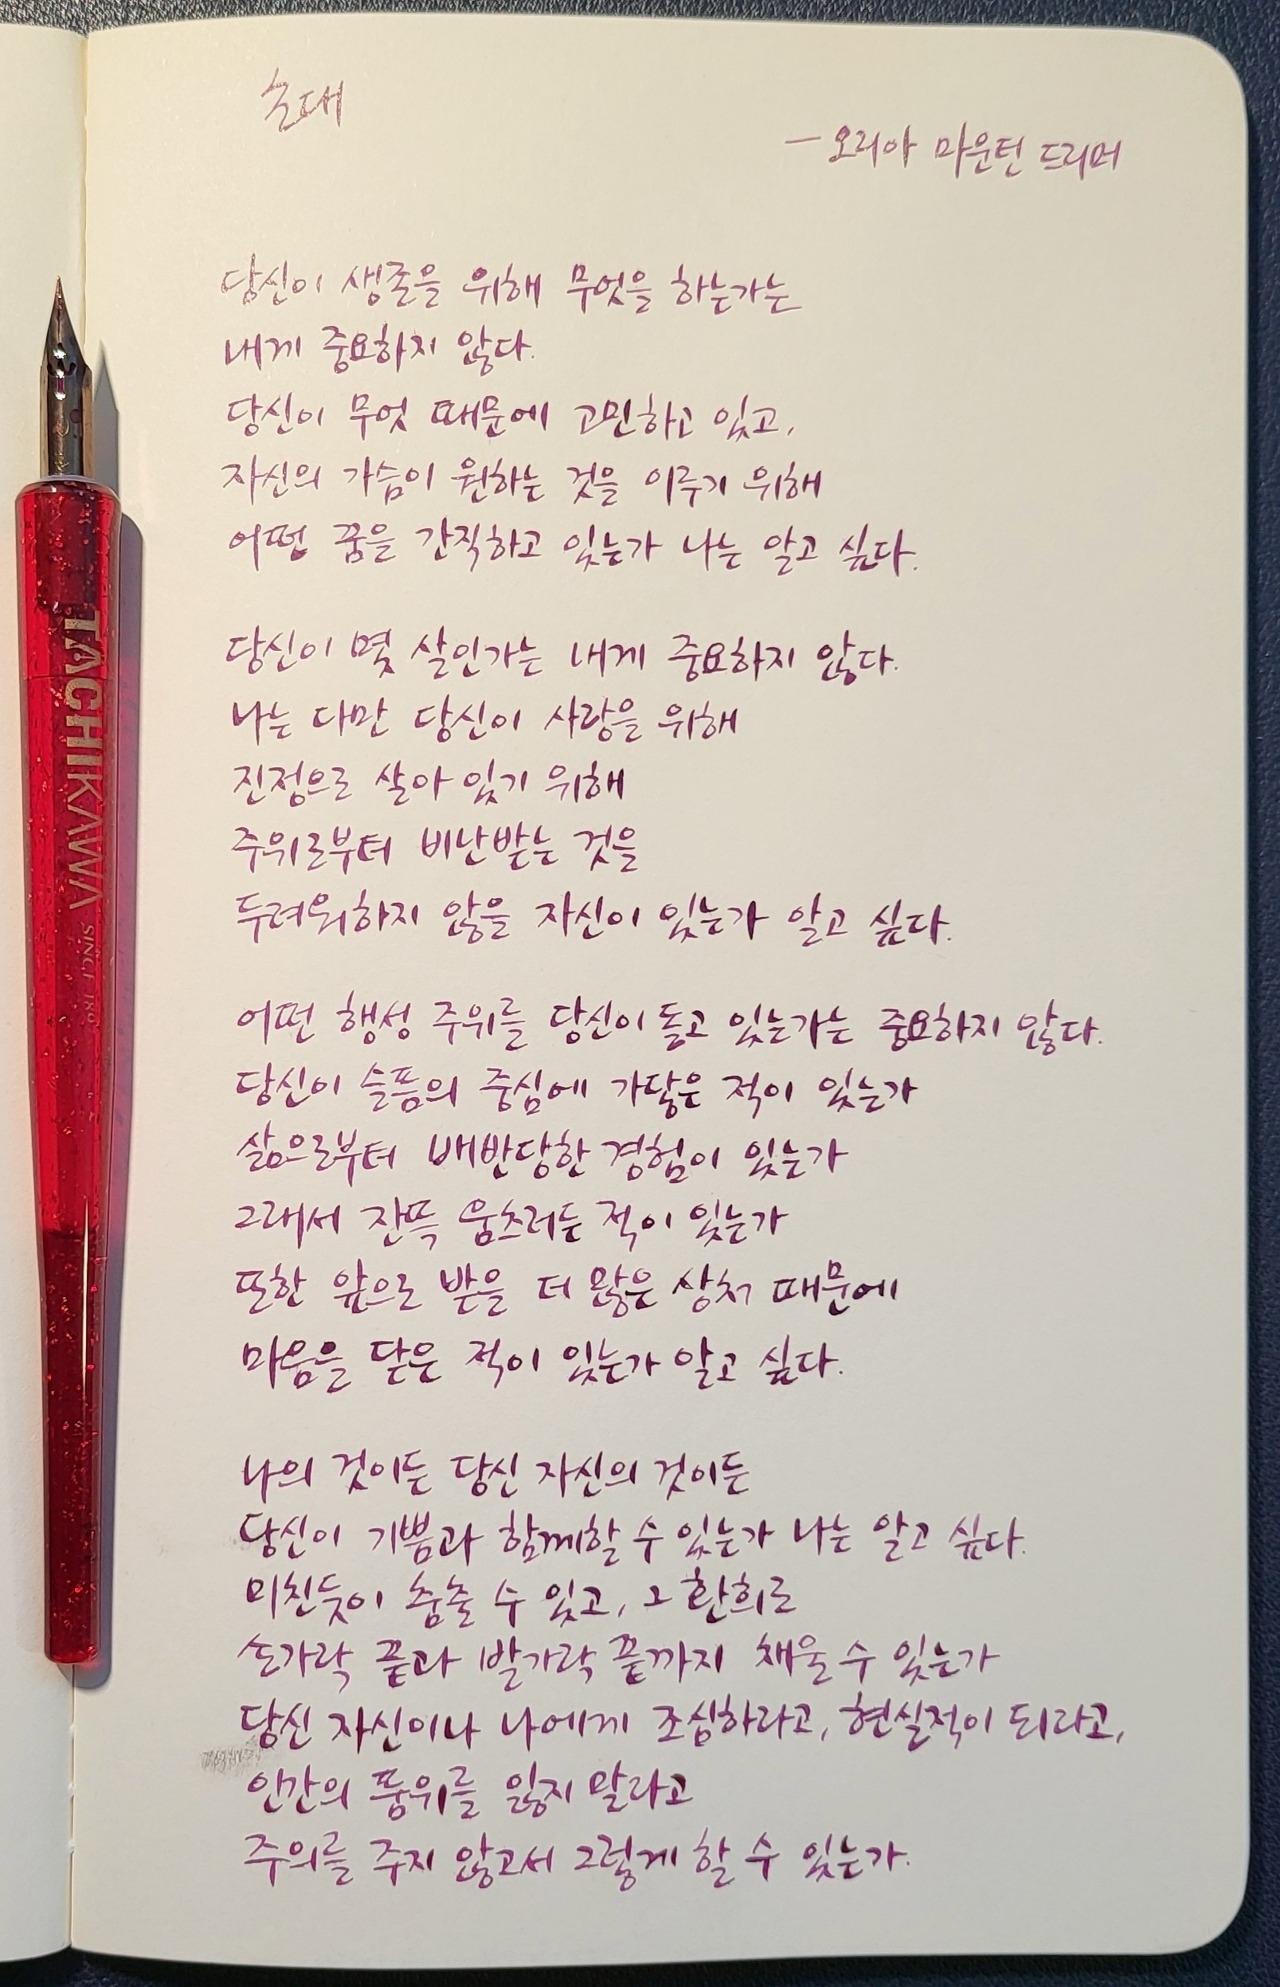 초대
- 오리아 마운턴 드리머
당신이 생존을 위해 무엇을 하는가는
내게 중요하지 않다.
당신이 무엇 때문에 고민하고 있고,
자신의 가슴이 원하는 것을 이루기 위해
어떤 꿈을 간직하고 있는가 나는 알고 싶다.
당신이 몇 살인가는 내게 중요하지 않다.
나는 다만 당신이 사랑을 위해
진정으로 살아 있기 위해
주위로부터 비난받는 것을
두려워하지 않을 자신이 있는가 알고 싶다.
어떤 행성 주위를 당신이 돌고 있는가는 중요하지 않다.
당신이 슬픔의 중심에 가닿은 적이 있는가
삶으로부터 배반당한 경험이 있는가
그래서 잔뜩 움츠러든 적이 있는가
또한 앞으로 받을 더 많은 상처 때문에
마음을 닫은 적이 있는가 알고 싶다.
나의 것이든 당신 자신의 것이든
당신이 기쁨과 함께할 수 있는가 나는 알고 싶다.
미친듯이 춤출 수 있고, 그 환희로
손가락 끝과 발가락 끝까지 채울 수 있는가
당신 자신이나 나에게 조심하라고, 현실적이 되라고,
인간의 품위를 잃지 말라고
주의를 주지 않고서 그렇게 할 수 있는가.
TACHIKAWA SINCE